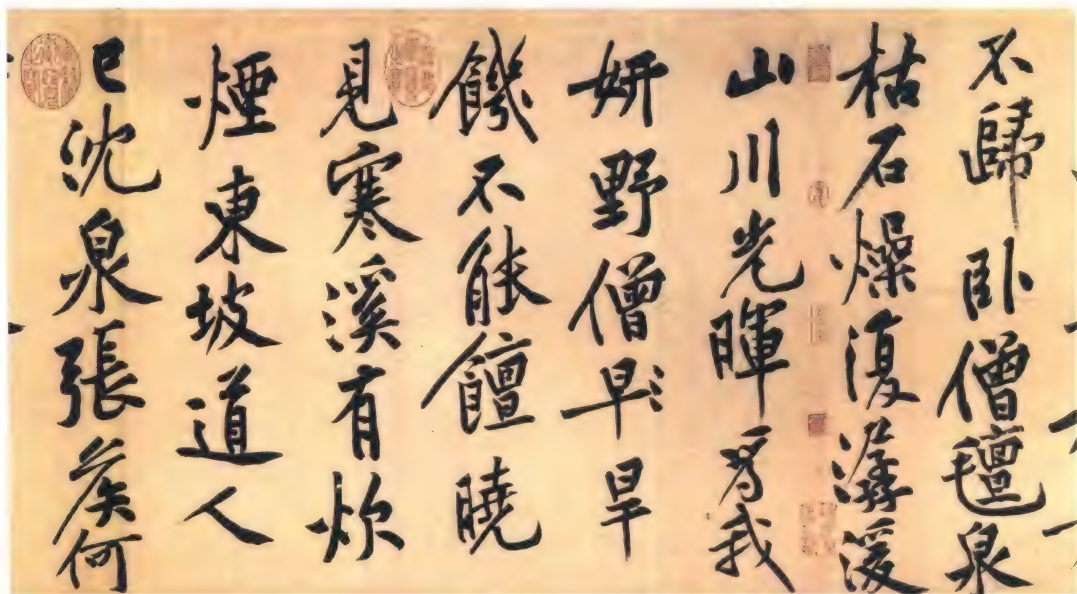 不歸卧僧氈泉
枯石燥復潺湲
山川光暉為我
妍野僧早旱
饑不能饘曉
見寒溪有炊
煙東坡道人
已沈泉張侯何